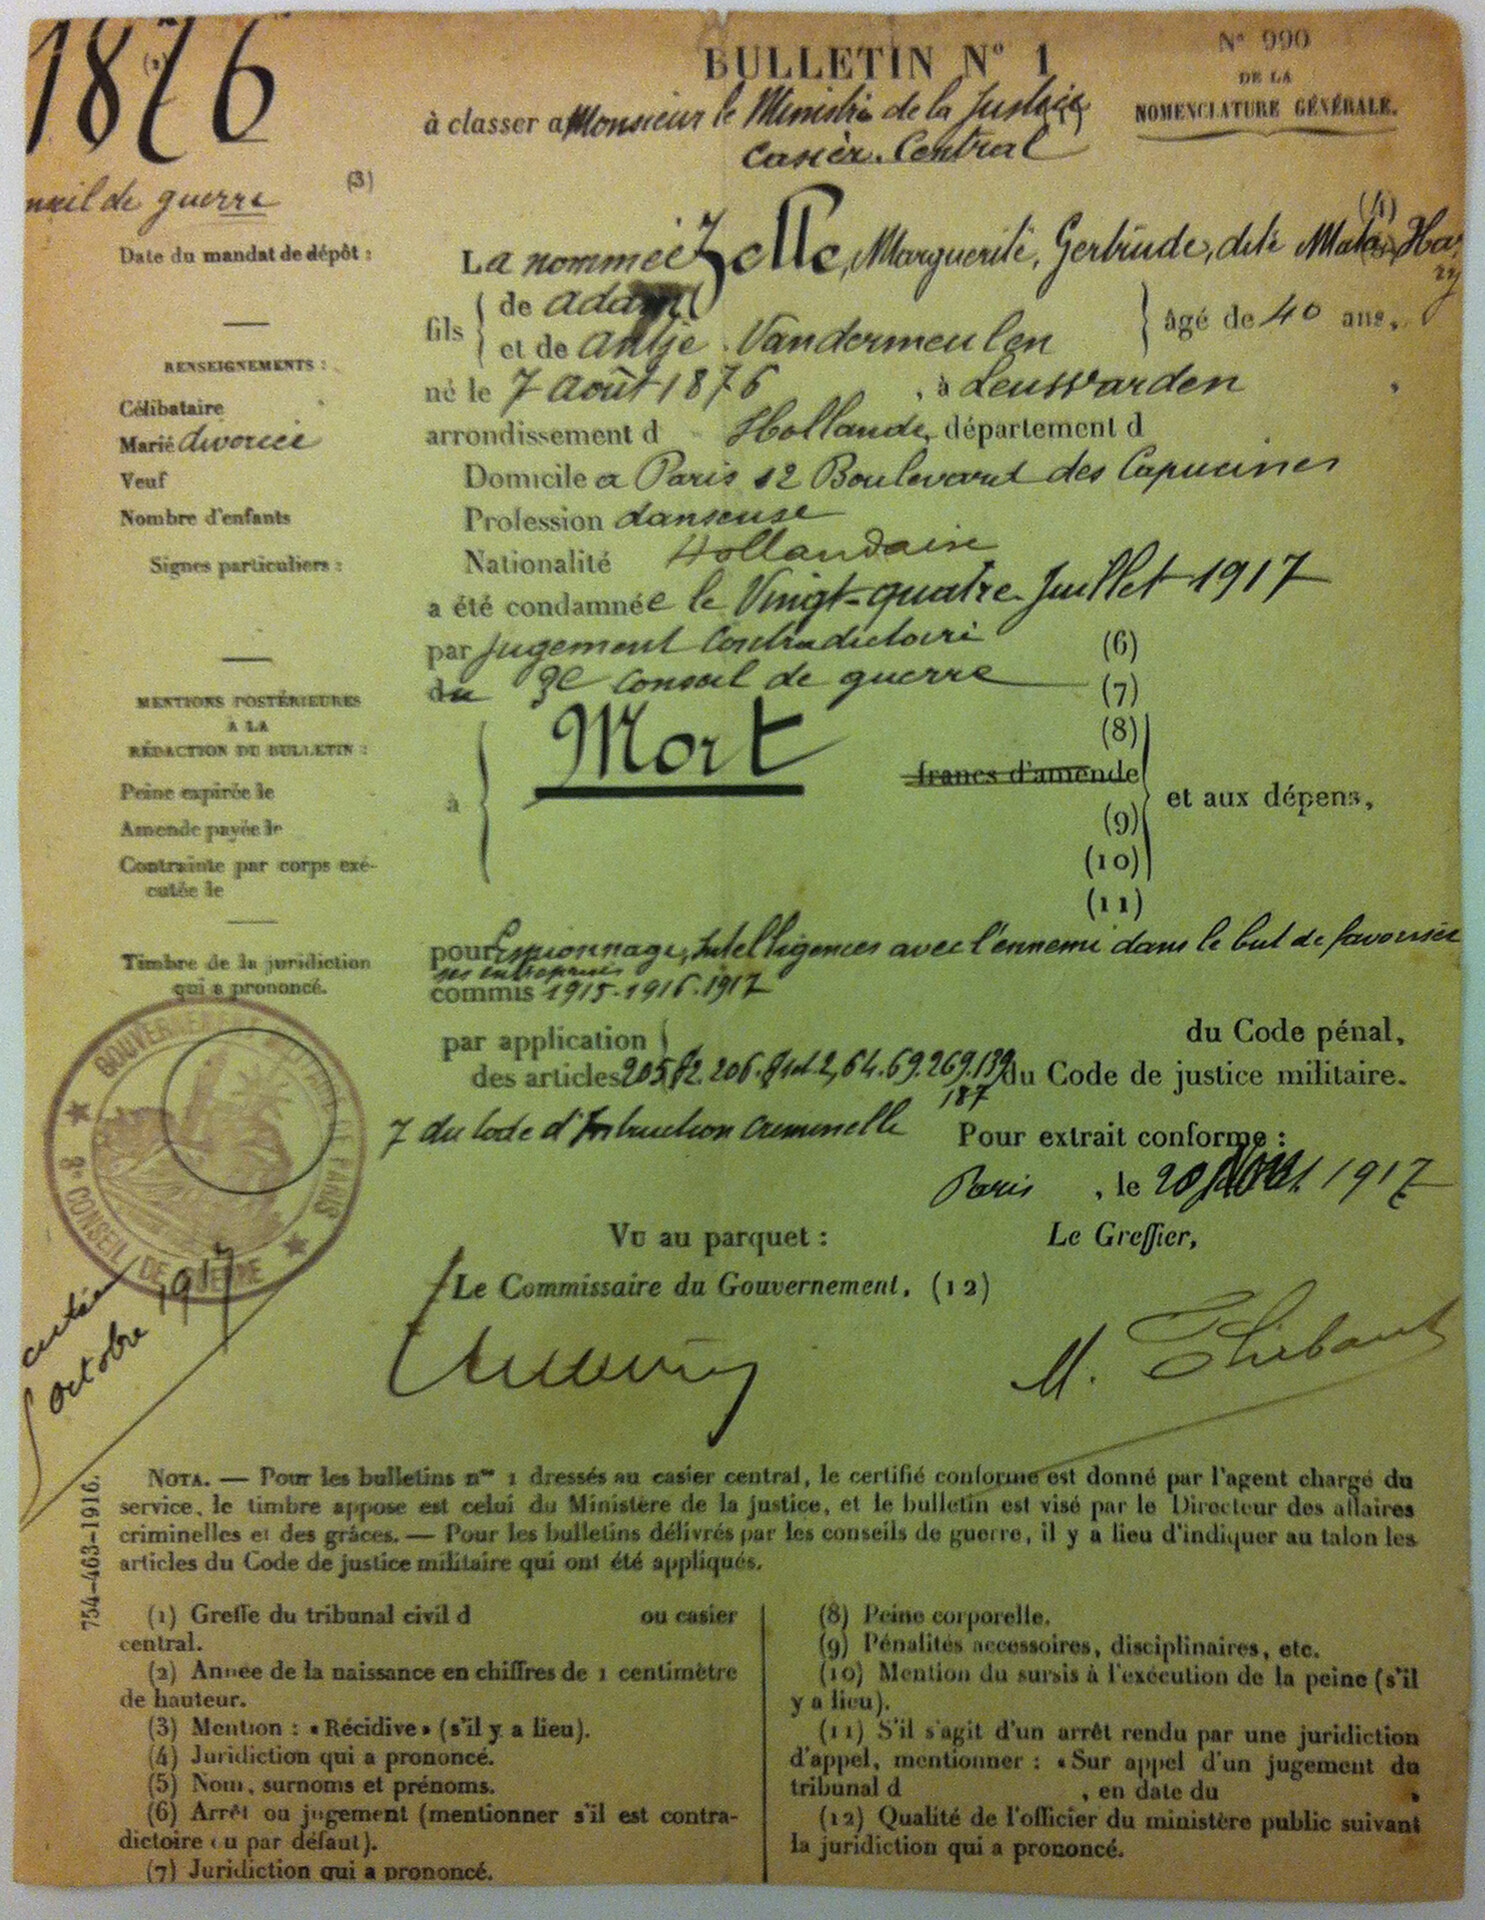 1876
(2)
BULLETIN N° 1
N° 990
DE LA
NOMENCLATURE GÉNÉRALE.
à classer a Monsieur le Ministre de la Justice (1)
Casier Central
nseil de guerre
(3)
(4)
Date du mandat de dépôt :
La nommée Zelle, Marguerite, Gertrude, dite Mata Hary
fils
de Adam
et de Antje Vandermeulen
âgé de 40 ans,
né le 7 Août 1876, à Leuswarden
arrondissement d Hollande, département d
Domicile a Paris 12 Boulevard des Capucines
Profession danseuse
Nationalité Hollandaise
a été condamnée le Vingt-quatre Juillet 1917
par jugement contradictoire (6)
du 3e Conseil de guerre (7)
à
Mort
(8)
francs d'amende
(9)
(10)
(11)
et aux dépens,
pour Espionnage, Intelligences avec l'ennemi dans le but de favoriser
ses entreprises
commis 1915-1916-1917
par application
des articles
du Code pénal,
du Code de justice militaire.
187
7 du Code d'Instruction Criminelle
Pour extrait conforme :
Paris, le 20 1917
Vu au parquet :
Le Greffier,
Le Commissaire du Gouvernement, (12)
M. Thibaut
RENSEIGNEMENTS :
Célibataire
Marié divorcée
Veuf
Nombre d'enfants
Signes particuliers :
MENTIONS POSTÉRIEURES
À LA
RÉDACTION DU BULLETIN :
Peine expirée le
Amende payée le
Contrainte par corps exé-
cutée le
Timbre de la juridiction
qui a prononcé.
GOUVERNEMENT MILITAIRE DE PARIS
3e CONSEIL DE GUERRE
cutée
octobre 1917
NOTA. — Pour les bulletins nos 1 dressés au casier central, le certifié conforme est donné par l'agent chargé du
service, le timbre apposé est celui du Ministère de la justice, et le bulletin est visé par le Directeur des affaires
criminelles et des grâces. — Pour les bulletins délivrés par les conseils de guerre, il y a lieu d'indiquer au talon les
articles du Code de justice militaire qui ont été appliqués.
754-463-1916.
(1) Greffe du tribunal civil d ou casier
central.
(2) Année de la naissance en chiffres de 1 centimètre
de hauteur.
(3) Mention : « Récidive » (s'il y a lieu).
(4) Juridiction qui a prononcé.
(5) Nom, surnoms et prénoms.
(6) Arrêt ou jugement (mentionner s'il est contra-
dictoire ou par défaut).
(7) Juridiction qui a prononcé.
(8) Peine corporelle.
(9) Pénalités accessoires, disciplinaires, etc.
(10) Mention du sursis à l'exécution de la peine (s'il
y a lieu).
(11) S'il s'agit d'un arrêt rendu par une juridiction
d'appel, mentionner : « Sur appel d'un jugement du
tribunal d , en date du »
(12) Qualité de l'officier du ministère public suivant
la juridiction qui a prononcé.